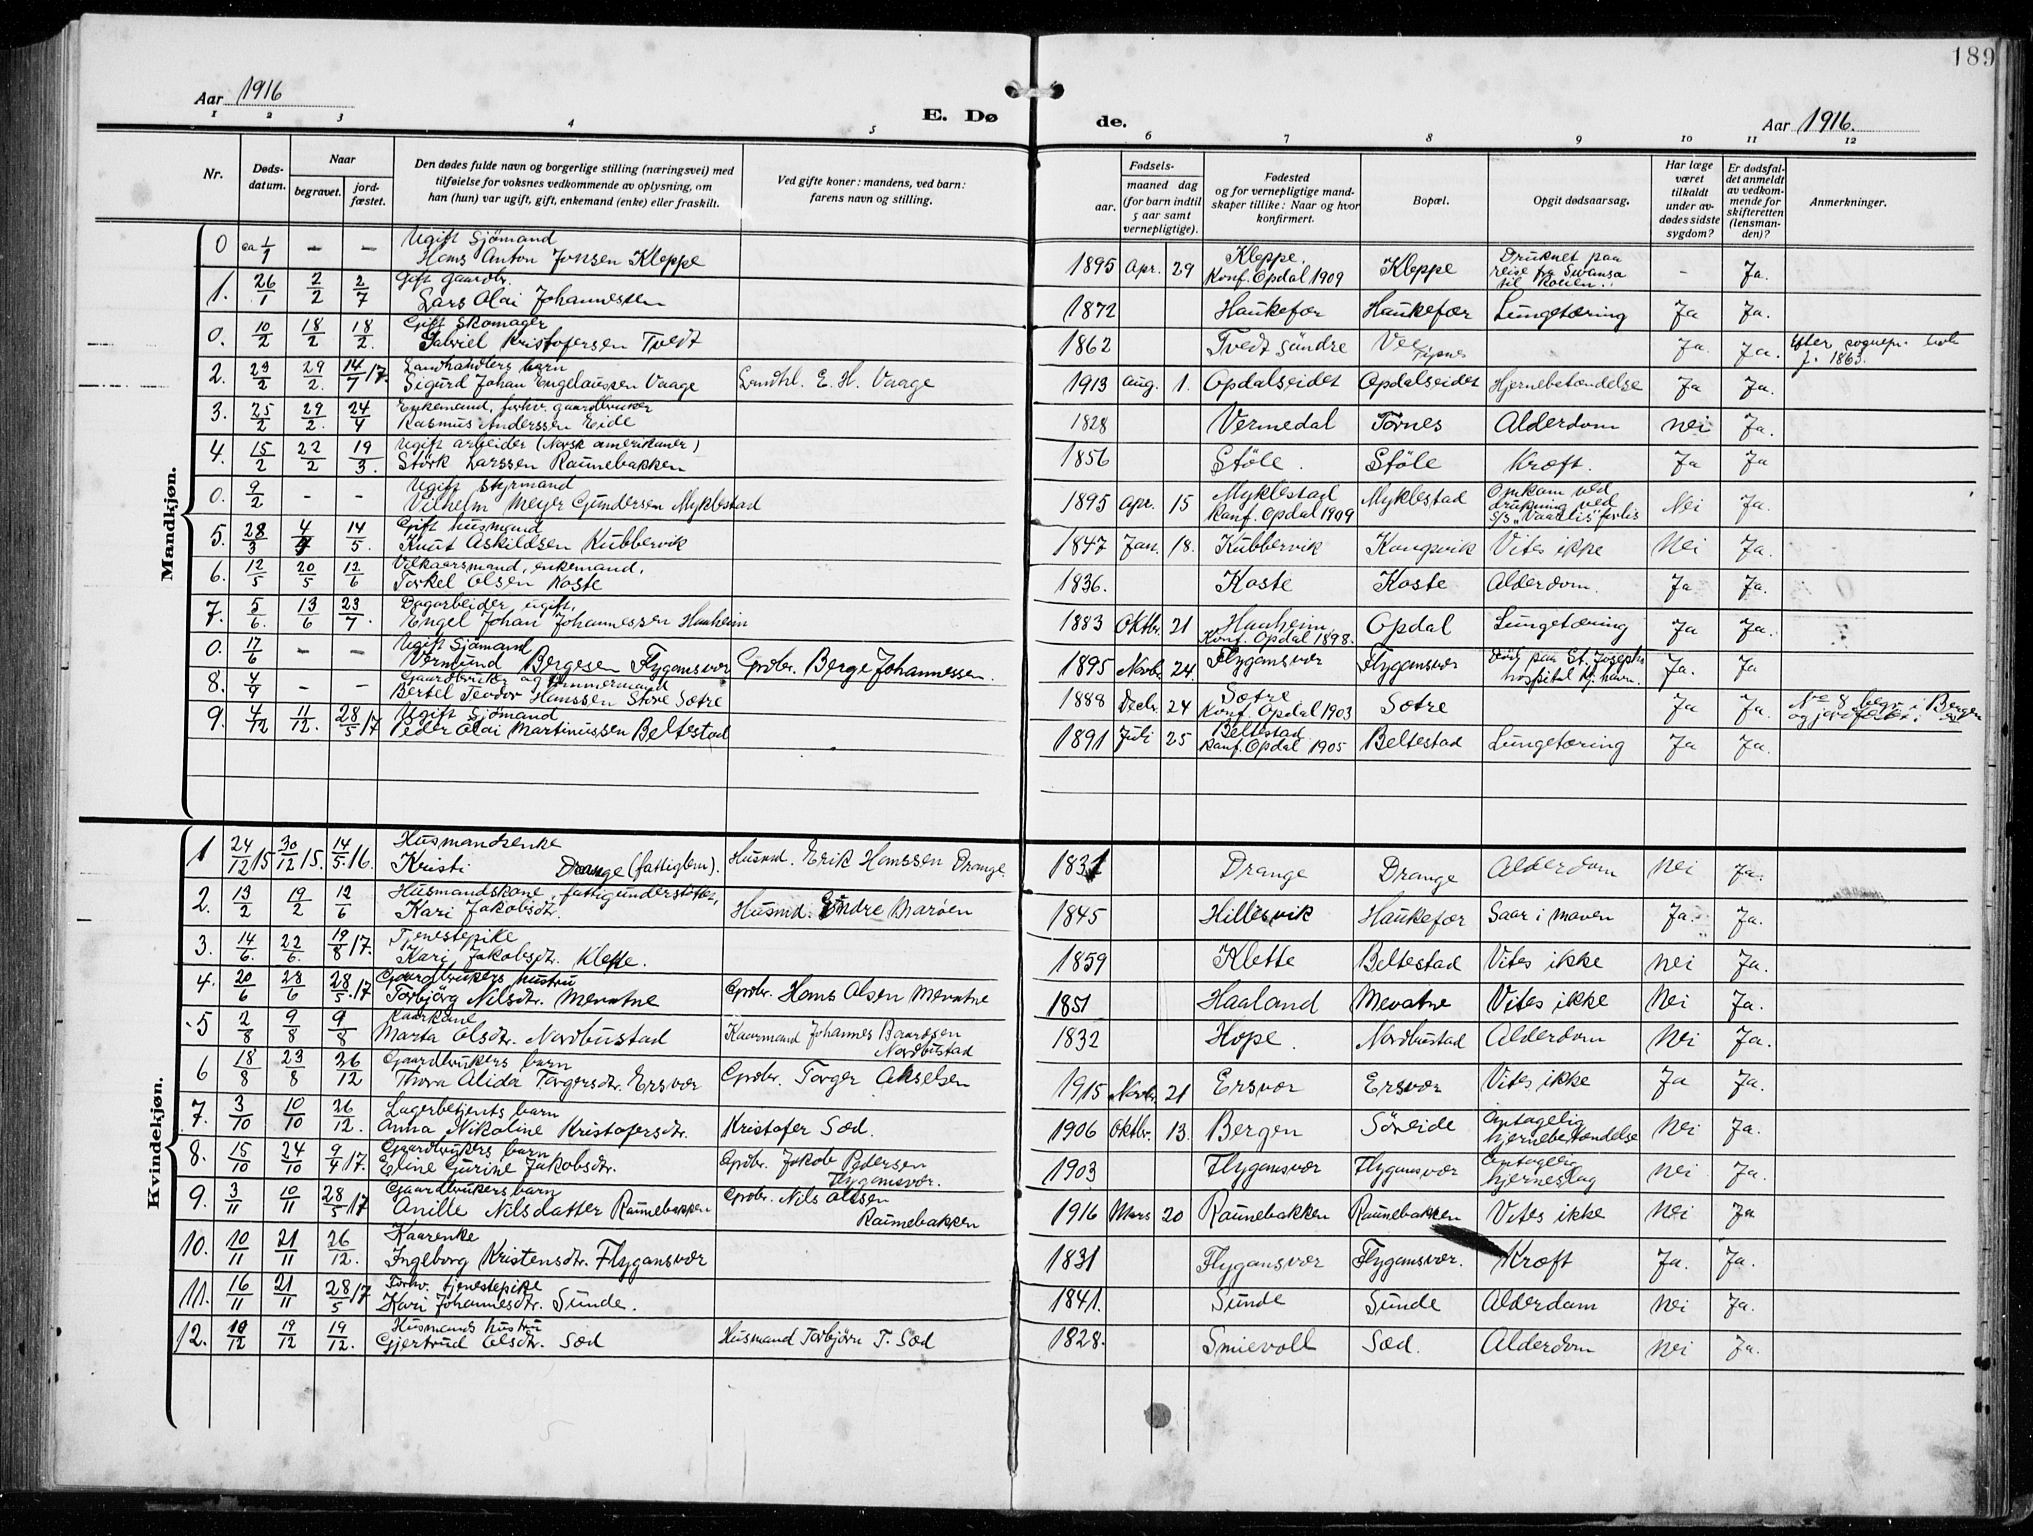 189
Aar 1916
E. Dø
de.
Aar 1916.
1 2 3 4 5 6 7 8 9 10 11 12
Nr.
Døds-
datum.
Naar
begravet.
jord-
fæstet.
Den dødes fulde navn og borgerlige stilling (næringsvei) med
tilføielse for voksnes vedkommende av oplysning, om
han (hun) var ugift, gift, enkemand (enke) eller fraskilt.
Ved gifte koner: mandens, ved barn:
farens navn og stilling.
Fødsels-
aar.
maaned dag
(for barn indtil
5 aar samt
vernepligtige).
Fødested
og for vernepligtige mand-
skaper tillike: Naar og hvor
konfirmert.
Bopæl.
Opgit dødsaarsag.
Har læge
været
tilkaldt
under av-
dødes sidste
sygdom?
Er dødsfal-
det anmeldt
av vedkom-
mende for
skifteretten
(lensman-
den)?
Anmerkninger.
Mandkjøn.
0 ca 1/1 – – Ugift Sjömand
Hans Anton Jonsen Kleppe
1895 Apr. 29 Kleppe. Konf. Opdal 1909 Kleppe Druknet paa reise fra Swansa til Rouen. – Ja.
1. 26/1 2/2 2/7 Gift gaardbr.
Lars Olai Johannessen
1872 Haukefær Haukefær Lungetæring Ja Ja.
0. 10/2 18/2 18/2. Gift Skomager
Gabriel Kristofersen Tvedt
1862 Tvedt søndre Ja. Ja. Efter sognepr.
f. 1863.
2. 23/2 29/2. 14/7 17. Landhandlers barn
Sigurd Johan Engelaussen Vaage Landhl. E. H. Vaage
1913 Aug. 1. Opdalseidet Opdalseidet Hjernebetændelse Ja Ja.
3. 25/2 29/2. 24/4 Enkemand, forhv. gaardbruker
Rasmus Anderssen Eide
1828 Vermedal Tornes Alderdom Nei Ja.
4. 15/2 22/2 19/3. Ugift arbeider (Norsk amerikaner)
Störk Larssen Raunebakken
1856 Stöle. Stöle Kræft. Ja Ja
0. 9/2 – – Ugift styrmand
Vilhelm Meyer Gundersen Myklestad
1895 Apr. 15 Myklestad Konf. Opdal 1909 Myklestad Omkom ved drukning ved S/S "Vaarlis" forlis Nei Ja.
5. 28/3 4/4 14/5. Gift husmand
Knut Askildsen Kubbervik
1847 Jan. 18. Kubbervik Kongsvik Vites ikke Nei Ja.
6. 12/5 20/5 12/6 Vilkaarsmand, enkemand.
Torkel Olsen Koste
1836. Koste Koste Alderdom. Ja. Ja.
7. 5/6. 13/6 23/7. Dagarbeider, ugift.
Engel Johan Johannessen Hauheim
1883 Oktbr. 21 Hauheim. Konf. Opdal 1898. Opdal Lungetæring Ja Ja.
0. 17/6 – – Ugift Sjömand
Vermund Bergesen Flygansvær Grdbr. Berge Johannessen.
1895 Novbr. 24. Flygansvær Flygansvær Död paa St. Josephs hospital Kj.havn. Ja. Ja
8. 4/9 – – Gaardbruker og tømmermand
Bertel Teodor Hanssen Store Sætre
1888 Decbr. 24 Sætre Konf. Opdal 1903 Sætre Ja Ja. No 8 begr. i Bergen
og jordfæstet i
9. 4/12 11/12. 28/5 17 Ugift Sjömand
Peder Olai Martinussen Beltestad
1891 Juli 25 Beltestad Konf. Opdal 1905 Beltestad Lungetæring Ja Ja.
Kvindekjøn.
1 24/12 15 30/12 15. 14/5 16. Husmandsenke
Kristi Drange (fattiglem). Husmd. Erik Hanssen Drange.
1831 Drange Drange Alderdom Nei Ja.
2. 13/2 19/2 12/6 Husmandskone, fattigunderstöttet,
Kari Jakobsdtr. Husmd. Endre Marøen
1845 Hillesvik Haukefær Saar i maven Ja. Ja.
3. 14/6. 22/6. 19/8 17. Tjenestepike
Kari Jakobsdtr. Klette.
1859 Klette Beltestad Vites ikke Nei Ja.
4. 20/6 28/6 28/5. 17 Gaardbrukers hustru
Torbjörg Nilsdtr. Mevatne Grdbr. Hans Olsen Mevatne
1851 Haaland Mevatne Vites ikke Nei Ja.
5 2/8 9/8 9/8 Kaarkone
Marta Olsdtr. Nordbustad Kaarmand Johannes Baardsen
Nordbustad
1832 Hope. Nordbustad Alderdom Nei Ja.
6 18/8 23/8 26/12 Gaardbrukers barn
Thora Alida Torgersdtr. Ersvær Grdbr. Torger Akselsen
1915 Novbr. 21 Ersvær Ersvær Vites ikke Ja Ja.
7. 3/10 10/10 26/12. Lagerbetjents barn
Anna Nikoline Kristofersdtr. Kristofer Sæd.
1906 Oktbr. 13. Bergen Söreide Optagelig hjernebetændelse Nei Ja.
8. 15/10 24/10 9/4 17. Gaardbrukers barn
Eline Gurine Jakobsdtr. Grdbr. Jakob Pedersen
Flygansvær.
1903 Flygansvær Flygansvær Optagelig hjerneslag Nei Ja.
9. 3/11 10/11 28/5 17 Gaardbrukers barn
Anille Nilsdatter Raunebakken Grdbr. Nils Olsen
Raunebakken
1916 Mars 20 Raunebakken Raunebakken Vites ikke Nei Ja
10. 10/11 21/11 26/12. Kaarenke
Ingeborg Kristensdtr. Flygansvær
1831 Flygansvær Flygansvær. Kræft Ja. Ja.
11. 16/11 21/11 28/5 17 Forhv. tjenestepike
Kari Johannesdtr. Sunde.
1841. Sunde Sunde Alderdom Nei Ja.
12. 10/12 19/12 19/12. Husmands hustru
Gjertrud Olsdtr. Sæd Husmand Torbjörn T. Sæd
1828. Smievoll Sæd. Alderdom Nei Ja.